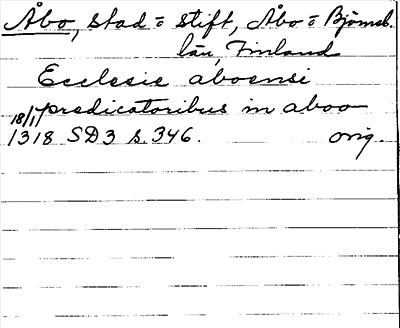 Åbo, stad = stift, Åbo = Björneb.
län, Finland
Ecclesie aboensi
predicatoribus in aboo
18/11
1318 SD3 s. 346. orig.